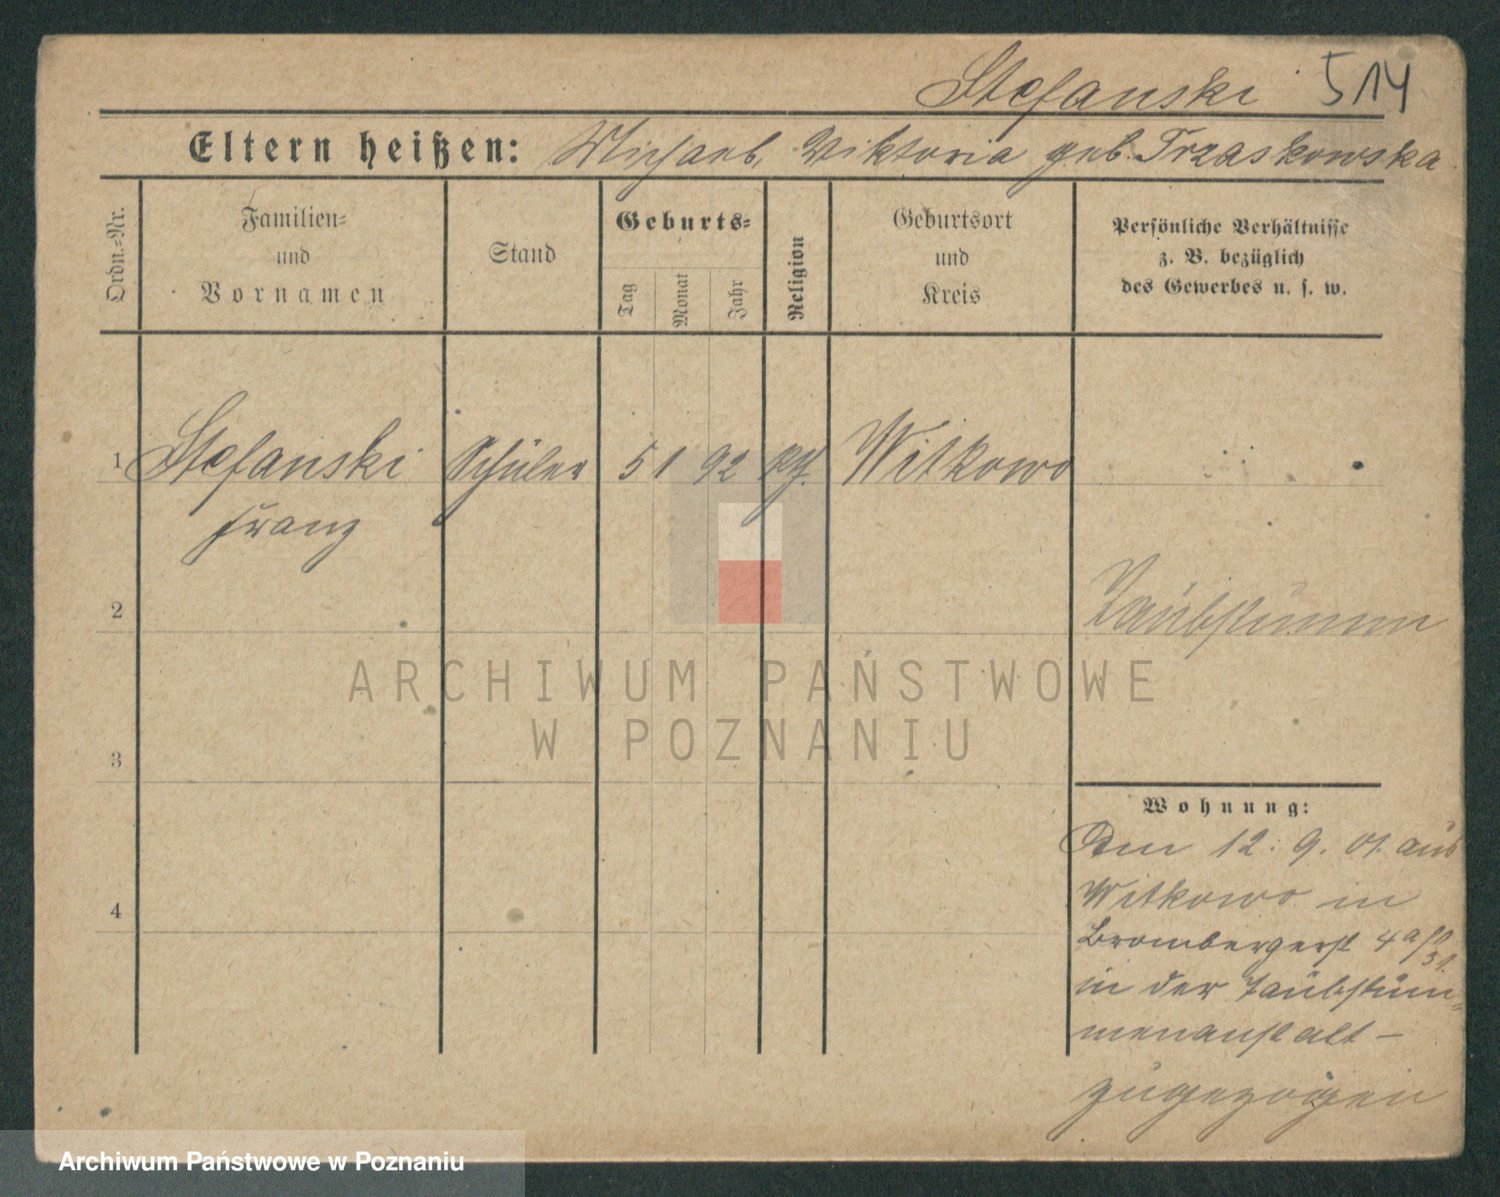 Stefanski 514
Eltern heißen: Michael, Viktoria geb. Trzaskowska
Ordn.-Nr.
Familien- und Vornamen
Stand
Geburts-
Tag
Monat
Jahr
Religion
Geburtsort und Kreis
Persönliche Verhältnisse
z. B. bezüglich
des Gewerbes u. s. w.
1 Stefanski Schüler 5 1 92 kth. Witkowo
Franz
2
Taubstumm
ARCHIWUM PAŃSTWOWE
W POZNANIU
3
Wohnung:
Am 12. 9. 01. aus
Witkowo in
4
Brombergerst 4a
in der Taubstum-
menanstalt –
zugezogen
Archiwum Państwowe w Poznaniu